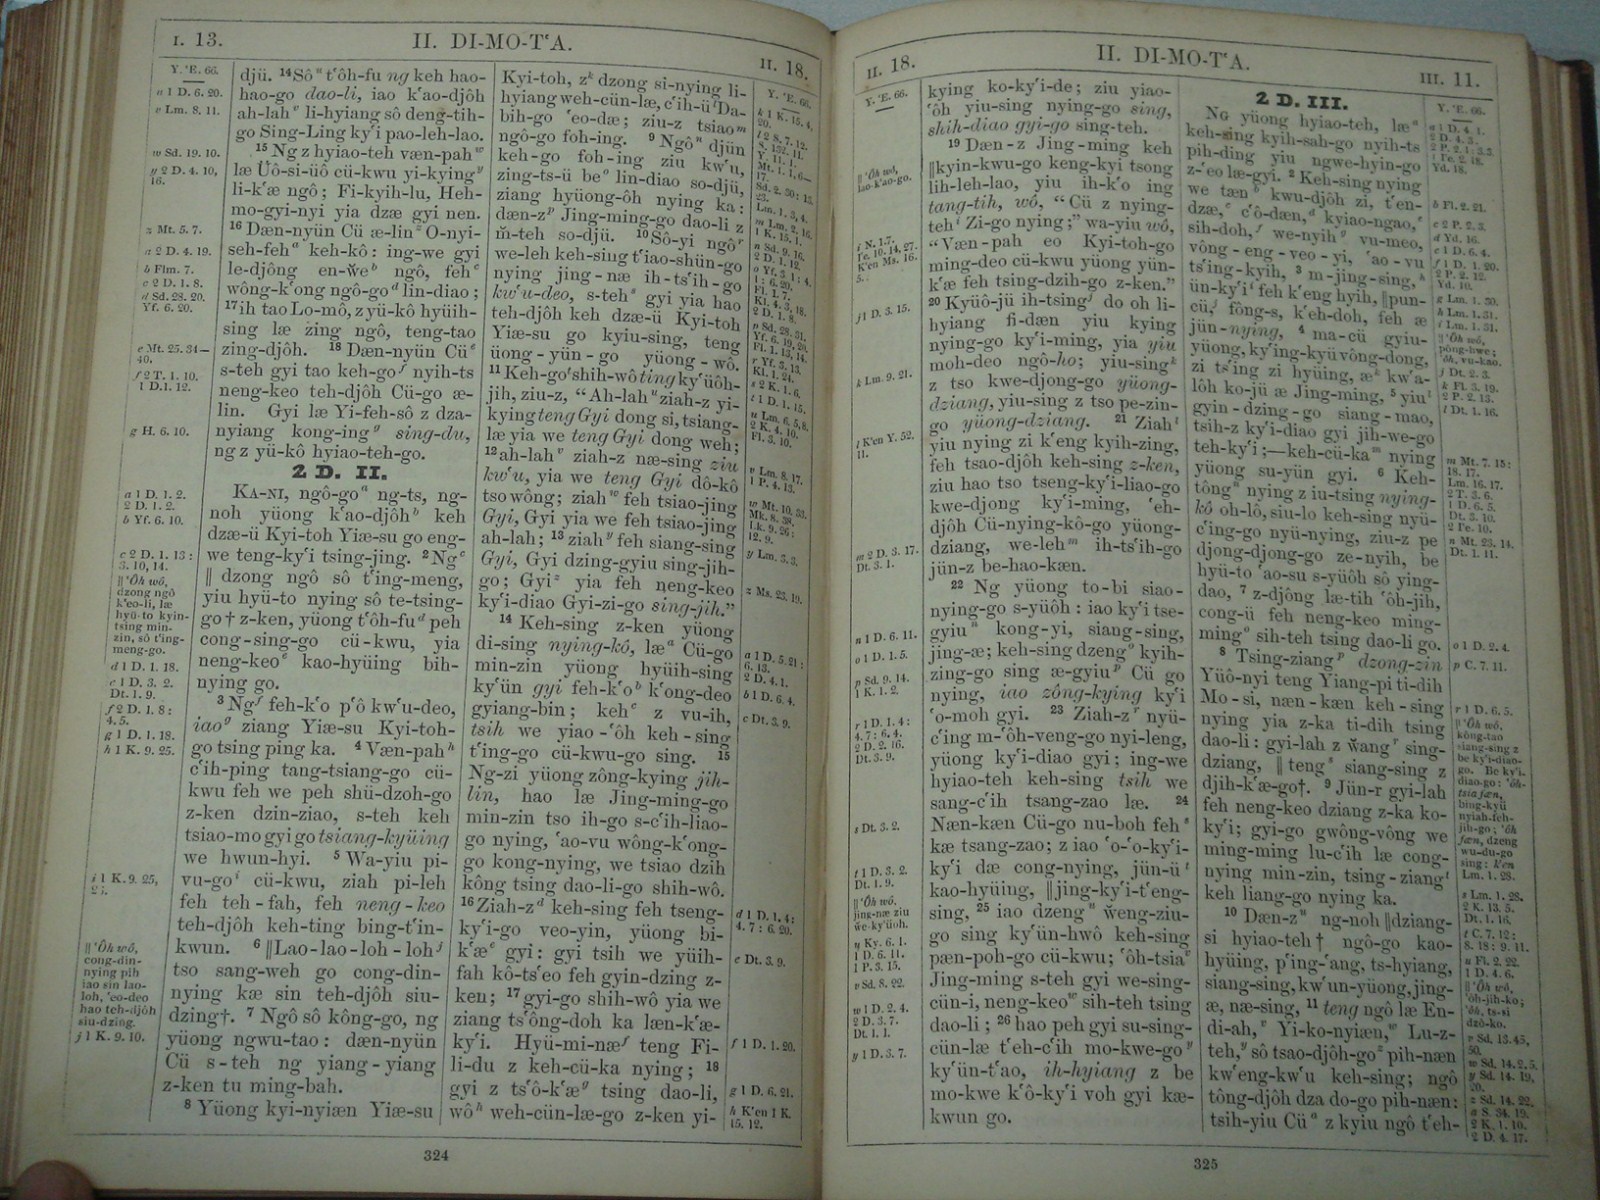 I. 13.
II. DI-MO-T‘A.
II. 18.
Y. ‘E. 66.
a 1 D. 6. 20.
c Lm. 8. 11.
w Sd. 19. 10.
y 2 D. 4. 10,
16.
z Mt. 5. 7.
a 2 D. 4. 19.
b Flm. 7.
c 2 D. 1. 8.
d Sd. 28. 20.
Yf. 6. 20.
e Mt. 25. 34—
40.
f 2 T. 1. 10.
1 D. 1. 12.
g H. 6. 10.
a 1 D. 1. 2.
2 D. 1. 2.
b Yf. 6. 10.
c 2 D. 1. 13:
3. 10, 14.
‖ ‘Ôh wô,
dzong ngô
k‘eo-li, læ
hyü-to kyin-
tsing min-
zin, sô t‘ing-
meng-go.
d 1 D. 1. 18.
e 1 D. 3. 2.
Dt. 1. 9.
f 2 D. 1. 8:
4. 5.
g 1 D. 1. 18.
h 1 K. 9. 25.
i 1 K. 9. 25,
‖ ‘Ôh wô,
cong-din-
nying pih
iao sin lao-
loh, ‘eo-deo
hao teh-djôh
siu-dzing.
j 1 K. 9. 10.
djü. ¹⁴Sôⁿ t‘ôh-fu ng keh hao-
hao-go dao-li, iao k‘ao-djôh
ah-lahᵛ li-hyiang sô deng-tih-
go Sing-Ling ky‘i pao-leh-lao.
¹⁵ Ng z hyiao-teh væn-pahʷ
læ Üô-si-üô cü-kwu yi-kyingʸ
li-k‘æ ngô; Fi-kyih-lu, Heh-
mo-gyi-nyi yia dzæ gyi nen.
¹⁶ Dæn-nyün Cü æ-linᶻ O-nyi-
seh-fehᵃ keh-kô: ing-we gyi
le-djông en-w̆eᵇ ngô, fehᶜ
wông-k‘ong ngô-goᵈ lin-diao;
¹⁷ih tao Lo-mô, z yü-kô hyüih-
sing læ zing ngô, teng-tao
zing-djôh. ¹⁸ Dæn-nyün Cüᵉ
s-teh gyi tao keh-goᶠ nyih-ts
neng-keo teh-djôh Cü-go æ-
lin. Gyi læ Yi-feh-sô z dza-
nyiang kong-ingᵍ sing-du,
ng z yü-kô hyiao-teh-go.
2 D. II.
KA-NI, ngô-goᵃ ng-ts, ng-
noh yüong k‘ao-djôhᵇ keh
dzæ-ü Kyi-toh Yiæ-su go eng-
we teng-ky‘i tsing-jing. ²Ngᶜ
‖ dzong ngô sô t‘ing-meng,
yiu hyü-to nying sô te-tsing-
go† z-ken, yüong t‘ôh-fuᵈ peh
cong-sing-go cü-kwu, yia
neng-keoᵉ kao-hyüing bih-
nying go.
³Ngᶠ feh-k‘o p‘ô kw‘u-deo,
iaoᵍ ziang Yiæ-su Kyi-toh-
go tsing ping ka. ⁴ Væn-pahʰ
c‘ih-ping tang-tsiang-go cü-
kwu feh we peh shü-dzoh-go
z-ken dzin-ziao, s-teh keh
tsiao-mo gyi go tsiang-kyüing
we hwun-hyi. ⁵ Wa-yiu pi-
vu-goⁱ cü-kwu, ziah pi-leh
feh teh-fah, feh neng-keo
teh-djôh keh-ting bing-t‘in-
kwun. ⁶ ‖Lao-lao-loh-lohʲ
tso sang-weh go cong-din-
nying kæ sin teh-djôh siu-
dzing†. ⁷ Ngô sô kông-go, ng
yüong ngwu-tao: dæn-nyün
Cü s-teh ng yiang-yiang
z-ken tu ming-bah.
⁸ Yüong kyi-nyiæn Yiæ-su
Kyi-toh, zᵏ dzong si-nying li-
hyiang weh-cün-læ, c‘ih-üˡDa-
bih-go ‘eo-dæ; ziu-z tsiaoᵐ
ngô-go foh-ing. ⁹ Ngôⁿ djün
keh-go foh-ing ziu kw‘u,
zing-ts-ü beᵒ lin-diao so-djü,
ziang hyüong-ôh nying ka:
dæn-zᵖ Jing-ming-go dao-li z
m̄-teh so-djü. ¹⁰ Sô-yi ngôʳ
we-leh keh-sing t‘iao-shün-go
nying jing-næ ih-ts‘ih-go
kw‘u-deo, s-tehˢ gyi yia hao
teh-djôh keh dzæ-ü Kyi-toh
Yiæ-su go kyiu-sing, teng
üong-yün-go yüong-wô.
¹¹ Keh-goᵗshih-wô ting ky‘üôh-
jih, ziu-z, “Ah-lahᵘ ziah-z yi-
kying teng Gyi dong si, tsiang-
læ yia we teng Gyi dong weh;
¹²ah-lahᵛ ziah-z næ-sing ziu
kw‘u, yia we teng Gyi dô-kô
tso wông; ziahʷ feh tsiao-jing
Gyi, Gyi yia we feh tsiao-jing
ah-lah; ¹³ ziahʸ feh siang-sing
Gyi, Gyi dzing-gyiu sing-jih-
go; Gyiᶻ yia feh neng-keo
ky‘i-diao Gyi-zi-go sing-jih.”
¹⁴ Keh-sing z-ken yüong
di-sing nying-kô, læᵃ Cü-go
min-zin yüong hyüih-sing
ky‘ün gyi feh-k‘oᵇ k‘ong-deo
gyiang-bin; kehᶜ z vu-ih,
tsih we yiao-‘ôh keh-sing
t‘ing-go cü-kwu-go sing. ¹⁵
Ng-zi yüong zông-kying jih-
lin, hao læ Jing-ming-go
min-zin tso ih-go s-c‘ih-liao-
go nying, ‘ao-vu wông-k‘ong-
go kong-nying, we tsiao dzih
kông tsing dao-li-go shih-wô.
¹⁶Ziah-zᵈ keh-sing feh tseng-
ky‘i-go veo-yin, yüong bi-
k‘æᵉ gyi: gyi tsih we yüih-
fah kô-ts‘eo feh gyin-dzing z-
ken; ¹⁷gyi-go shih-wô yia we
ziang ts‘ông-doh ka læn-k‘æ-
ky‘i. Hyü-mi-næᶠ teng Fi-
li-du z keh-cü-ka nying; ¹⁸
gyi z ts‘ô-k‘æᵍ tsing dao-li,
wôʰ weh-cün-læ-go z-ken yi-
Y. ‘E. 66.
k 1 K. 15. 4,
20.
l 2 S. 7. 12.
S. 132. 11.
Y. 11. 1.
Mt. 1. 1, 6—
17.
Sd. 2. 30: 13.
23.
Lm. 1. 3, 4.
m Lm. 2. 16.
1 K. 15. 1.
n Sd. 9. 16.
2 D. 1. 12.
o Yf. 3. 1: 4.
1: 6. 20.
Fl. 1. 7.
Kl. 4. 3, 18.
2 D. 1. 8.
p Sd. 28. 31.
Yf. 6. 19, 20.
Fl. 1. 13, 14.
r Yf. 3. 13.
Kl. 1. 24.
s 2 K. 1. 6.
t 1 D. 1. 15.
u Lm. 6. 5, 8.
2 K. 4. 10.
Fl. 3. 10.
v Lm. 8. 17.
1 P. 4. 13.
w Mt. 10. 33.
Mk. 8. 38.
Lk. 9. 26:
12. 9.
y Lm. 3. 3.
z Ms. 23. 19.
a 1 D. 5. 21:
6. 13.
2 D. 4. 1.
b 1 D. 6. 4.
c Dt. 3. 9.
d 1 D. 1. 4:
4. 7: 6. 20.
e Dt. 3. 9.
f 1 D. 1. 20.
g 1 D. 6. 21.
h K‘en 1 K.
15. 12.
324
II. 18.
II. DI-MO-T‘A.
III. 11.
Y. ‘E. 66.
‖ ‘Ôh wô,
lao-k‘ao-go.
i N. 1. 7.
Ye. 10. 14, 27.
K‘en Ms. 16.
5.
j 1 D. 3. 15.
k Lm. 9. 21.
l K‘en Y. 52.
11.
m 2 D. 3. 17.
Dt. 3. 1.
n 1 D. 6. 11.
o 1 D. 1. 5.
p Sd. 9. 14.
1 K. 1. 2.
r 1 D. 1. 4:
4. 7: 6. 4.
2 D. 2. 16.
Dt. 3. 9.
s Dt. 3. 2.
t 1 D. 3. 2.
Dt. 1. 9.
‖ ‘Ôh wô,
jing-næ ziu
w̆e-ky‘üô.
u Ky. 6. 1.
1 D. 6. 11.
1 P. 3. 15.
v Sd. 8. 22.
w 1 D. 2. 4.
2 D. 3. 7.
Dt. 1. 1.
y 1 D. 3. 7.
kying ko-ky‘i-de; ziu yiao-
‘ôh yiu-sing nying-go sing,
shih-diao gyi-go sing-teh.
¹⁹ Dæn-z Jing-ming keh
‖kyin-kwu-go keng-kyi tsong
lih-leh-lao, yiu ih-k‘o ing
tang-tih, wô, “Cü z nying-
tehⁱ Zi-go nying;” wa-yiu wô,
“Væn-pah eo Kyi-toh-go
ming-deo cü-kwu yüong yün-
k‘æ feh tsing-dzih-go z-ken.”
²⁰ Kyüô-jü ih-tsingʲ do oh li-
hyiang fi-dæn yiu kying
nying-go ky‘i-ming, yia yiu
moh-deo ngô-ho; yiu-singᵏ
z tso kwe-djong-go yüong-
dziang, yiu-sing z tso pe-zin-
go yüong-dziang. ²¹ Ziahˡ
yiu nying zi k‘eng kyih-zing,
feh tsao-djôh keh-sing z-ken,
ziu hao tso tseng-ky‘i-liao-go
kwe-djong ky‘i-ming, ‘eh-
djôh Cü-nying-kô-go yüong-
dziang, we-lehᵐ ih-ts‘ih-go
jün-z be-hao-kæn.
²² Ng yüong to-bi siao-
nying-go s-yüôh: iao ky‘i tse-
gyiuⁿ kong-yi, siang-sing,
jing-æ; keh-sing dzengᵒ kyih-
zing-go sing æ-gyiuᵖ Cü go
nying, iao zông-kying ky‘i
‘o-moh gyi. ²³ Ziah-zʳ nyü-
c‘ing m-‘ôh-veng-go nyi-leng,
yüong ky‘i-diao gyi; ing-we
hyiao-teh keh-sing tsih we
sang-c‘ih tsang-zao læ. ²⁴
Næn-kæn Cü-go nu-boh fehˢ
kæ tsang-zao; z iao ‘o-‘o-ky‘i-
ky‘i dæ cong-nying, jün-üᵗ
kao-hyüing, ‖jing-ky‘i-t‘eng-
sing, ²⁵ iao dzengᵘ w̆eng-ziu-
go sing ky‘ün-hwô keh-sing
pæn-poh-go cü-kwu; ‘ôh-tsiaᵛ
Jing-ming s-teh gyi we-sing-
cün-i, neng-keoʷ sih-teh tsing
dao-li; ²⁶ hao peh gyi su-sing-
cün-læ t‘eh-c‘ih mo-kwe-goʸ
ky‘ün-t‘ao, ih-hyiang z be
mo-kwe k‘ô-ky‘i voh gyi kæ-
kwun go.
2 D. III.
NG yüong hyiao-teh, læᵃ
keh-sing kyih-sah-go nyih-ts
pih-ding yiu ngwe-hyin-go
z-‘eo læ-gyi. ² Keh-sing nying
we tænᵇ kwu-djôh zi, t‘en-
dzæ,ᶜ c‘ô-dæn,ᵈ kyiao-ngao,ᵉ
sih-doh,ᶠ we-nyihᵍ vu-meo,
vông-eng-veo-yi, ‘ao-vu
ts‘ing-kyih, ³ m-jing-sing,ʰ
ün-ky‘iⁱ feh k‘eng hyih, ‖pun-
cü,ʲ fông-s, k‘eh-doh, feh æ
jün-nying, ⁴ ma-cü gyiu-
yüong, ky‘ing-kyü vông-dong,
zi ts‘ing zi hyüing, æᵏ kw‘a-
lôh ko-jü æ Jing-ming, ⁵ yiuˡ
gyin-dzing-go siang-mao,
tsih-z ky‘i-diao gyi jih-we-go
teh-ky‘i;—keh-cü-kaᵐ nying
yüong su-yün gyi. ⁶ Keh-
tôngⁿ nying z iu-tsing nying-
kô oh-lô, siu-lo keh-sing nyü-
c‘ing-go nyü-nying, ziu-z pe
djong-djong-go ze-nyih, be
hyü-to ‘ao-su s-yüôh sô ying-
dao, ⁷ z-djông læ-tih ‘ôh-jih,
cong-ü feh neng-keo ming-
mingᵒ sih-teh tsing dao-li go.
⁸ Tsing-ziangᵖ dzong-zin
Yüô-nyi teng Yiang-pi ti-dih
Mo-si, næn-kæn keh-sing
nying yia z-ka ti-dih tsing
dao-li: gyi-lah z w̆angʳ sing-
dziang, ‖ tengˢ siang-sing z
djih-k‘æ-go†. ⁹ Jün-r gyi-lah
feh neng-keo dziang z-ka ko-
ky‘i; gyi-go gwông-vông we
ming-ming lu-c‘ih læ cong-
nying min-zin, tsing-ziangᵗ
keh liang-go nying ka.
¹⁰ Dæn-zᵘ ng-noh ‖dziang-
si hyiao-teh† ngô-go kao-
hyüing, p‘ing-‘ang, ts-hyiang,
siang-sing, kw‘un-yüong, jing-
æ, næ-sing, ¹¹ teng ngô læ En-
di-ah,ᵛ Yi-ko-nyiæn,ʷ Lu-z-
teh,ʸ sô tsao-djôh-goᶻ pih-næn
kw‘eng-kw‘u keh-sing; ngô
tông-djôh dza do-go pih-næn:
tsih-yiu Cüᵃ z kyiu ngô t‘eh-
Y. ‘E. 66.
a 1 D. 4. 1.
2 D. 4. 3.
2 P. 2. 1: 3. 3.
1 Ye. 2. 18.
Yd. 18.
b Fl. 2. 21.
c 2 P. 2. 3.
d Yd. 16.
e 1 D. 6. 4.
f 1 D. 1. 20.
2 P. 2. 12.
Yd. 10.
g Lm. 1. 30.
h Lm. 1. 31.
i Lm. 1. 31.
‖ ‘Ôh wô,
pông-hwe;
ôh, vu-kao.
j Dt. 2. 3.
k Fl. 3. 19.
2 P. 2. 13.
l Dt. 1. 16.
m Mt. 7. 15:
18. 17.
Lm. 16. 17.
2 T. 3. 6.
1 D. 6. 5.
Dt. 3. 10.
2 Ye. 10.
n Mt. 23. 14.
Dt. 1. 11.
o 1 D. 2. 4.
p C. 7. 11.
r 1 D. 6. 5.
‖ ‘Ôh wô,
kông-tao
siang-sing z
be ky‘i-diao-
go. Be ky‘i-
diao-go: ‘ôh-
tsia fæn,
bing-kyü
nyiah-feh-
jih-go; ‘ôh
fæn, dzeng
wu-du-go
sing: k‘en
Lm. 1. 28.
s Lm. 1. 28.
2 K. 13. 5.
Dt. 1. 16.
t C. 7. 12:
8. 18: 9. 11.
u Fl. 2. 22.
1 D. 4. 6.
‖ ‘Ôh wô,
‘ôh-jih-ko;
‘ôh, ts-si
dzô-ko.
v Sd. 13. 45,
50.
w Sd. 14. 2, 5.
y Sd. 14. 19,
20.
z Sd. 14. 22.
a S. 34. 19.
2 K. 1. 10.
2 D. 4. 17.
325